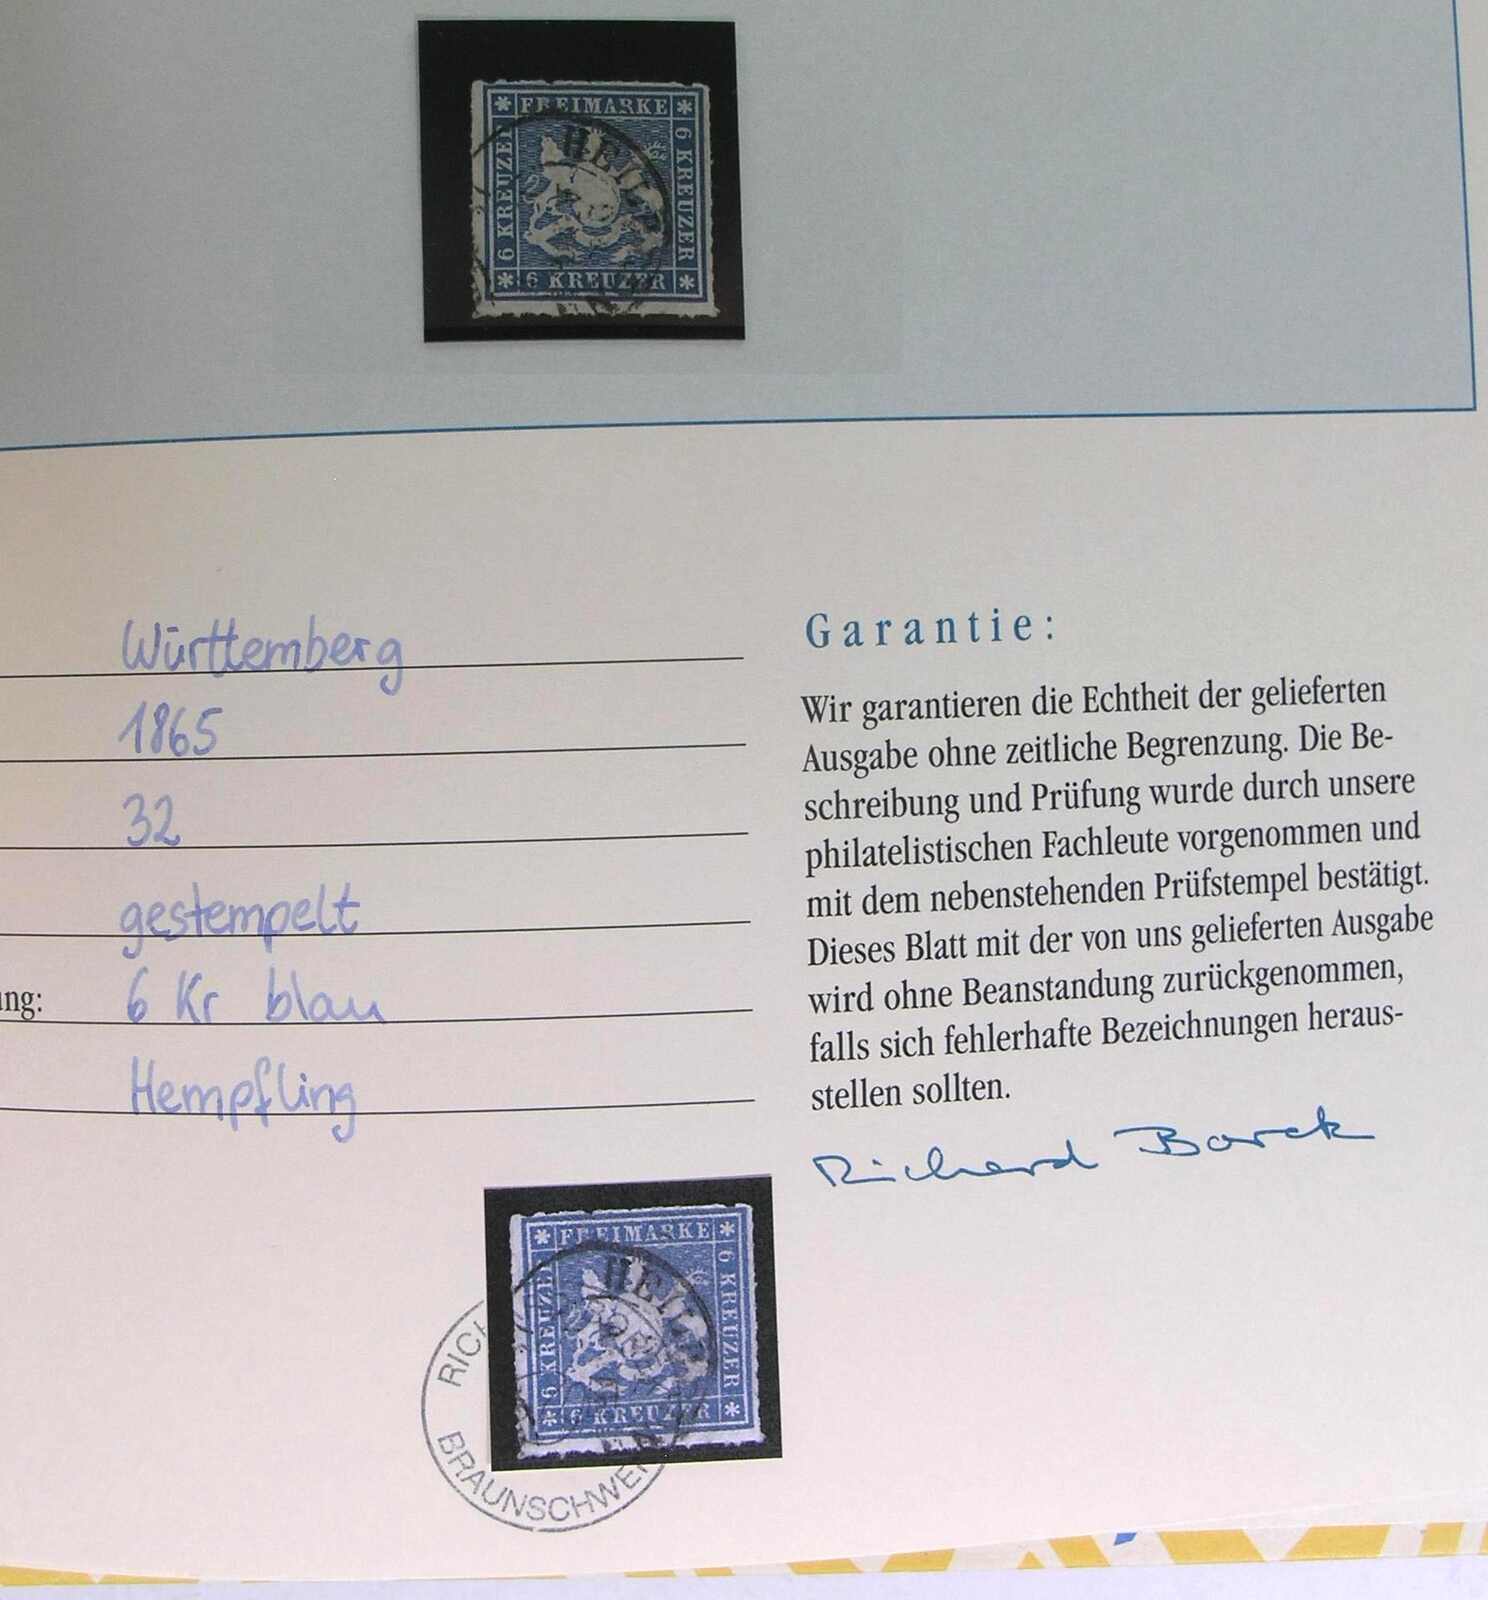 FREIMARKE
6 KREUZER
6 KREUZER
6 KREUZER
HEIL
Württemberg
1865
32
gestempelt
ung: 6 Kr blau
Hempfling
Garantie:
Wir garantieren die Echtheit der gelieferten
Ausgabe ohne zeitliche Begrenzung. Die Be-
schreibung und Prüfung wurde durch unsere
philatelistischen Fachleute vorgenommen und
mit dem nebenstehenden Prüfstempel bestätigt.
Dieses Blatt mit der von uns gelieferten Ausgabe
wird ohne Beanstandung zurückgenommen,
falls sich fehlerhafte Bezeichnungen heraus-
stellen sollten.
Richard Borek
FREIMARKE
6 KREUZER
6 KREUZER
6 KREUZER
HEIL
RICH
BRAUNSCHWEI